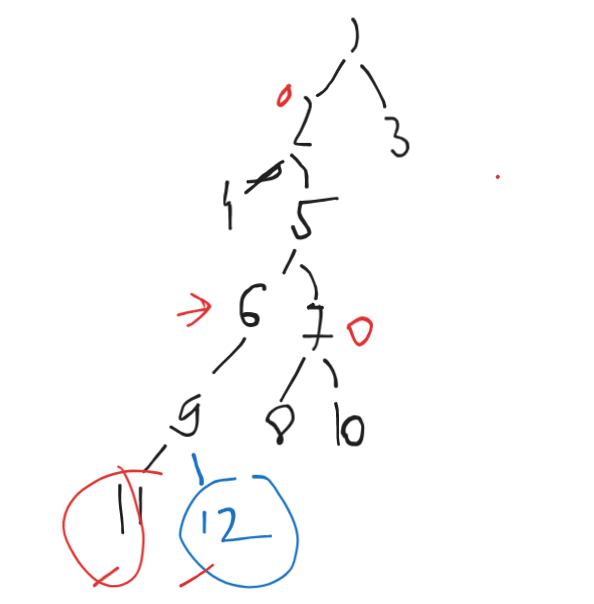 1
0 2 3
4 5
6 7 0
9 8 10
11 12